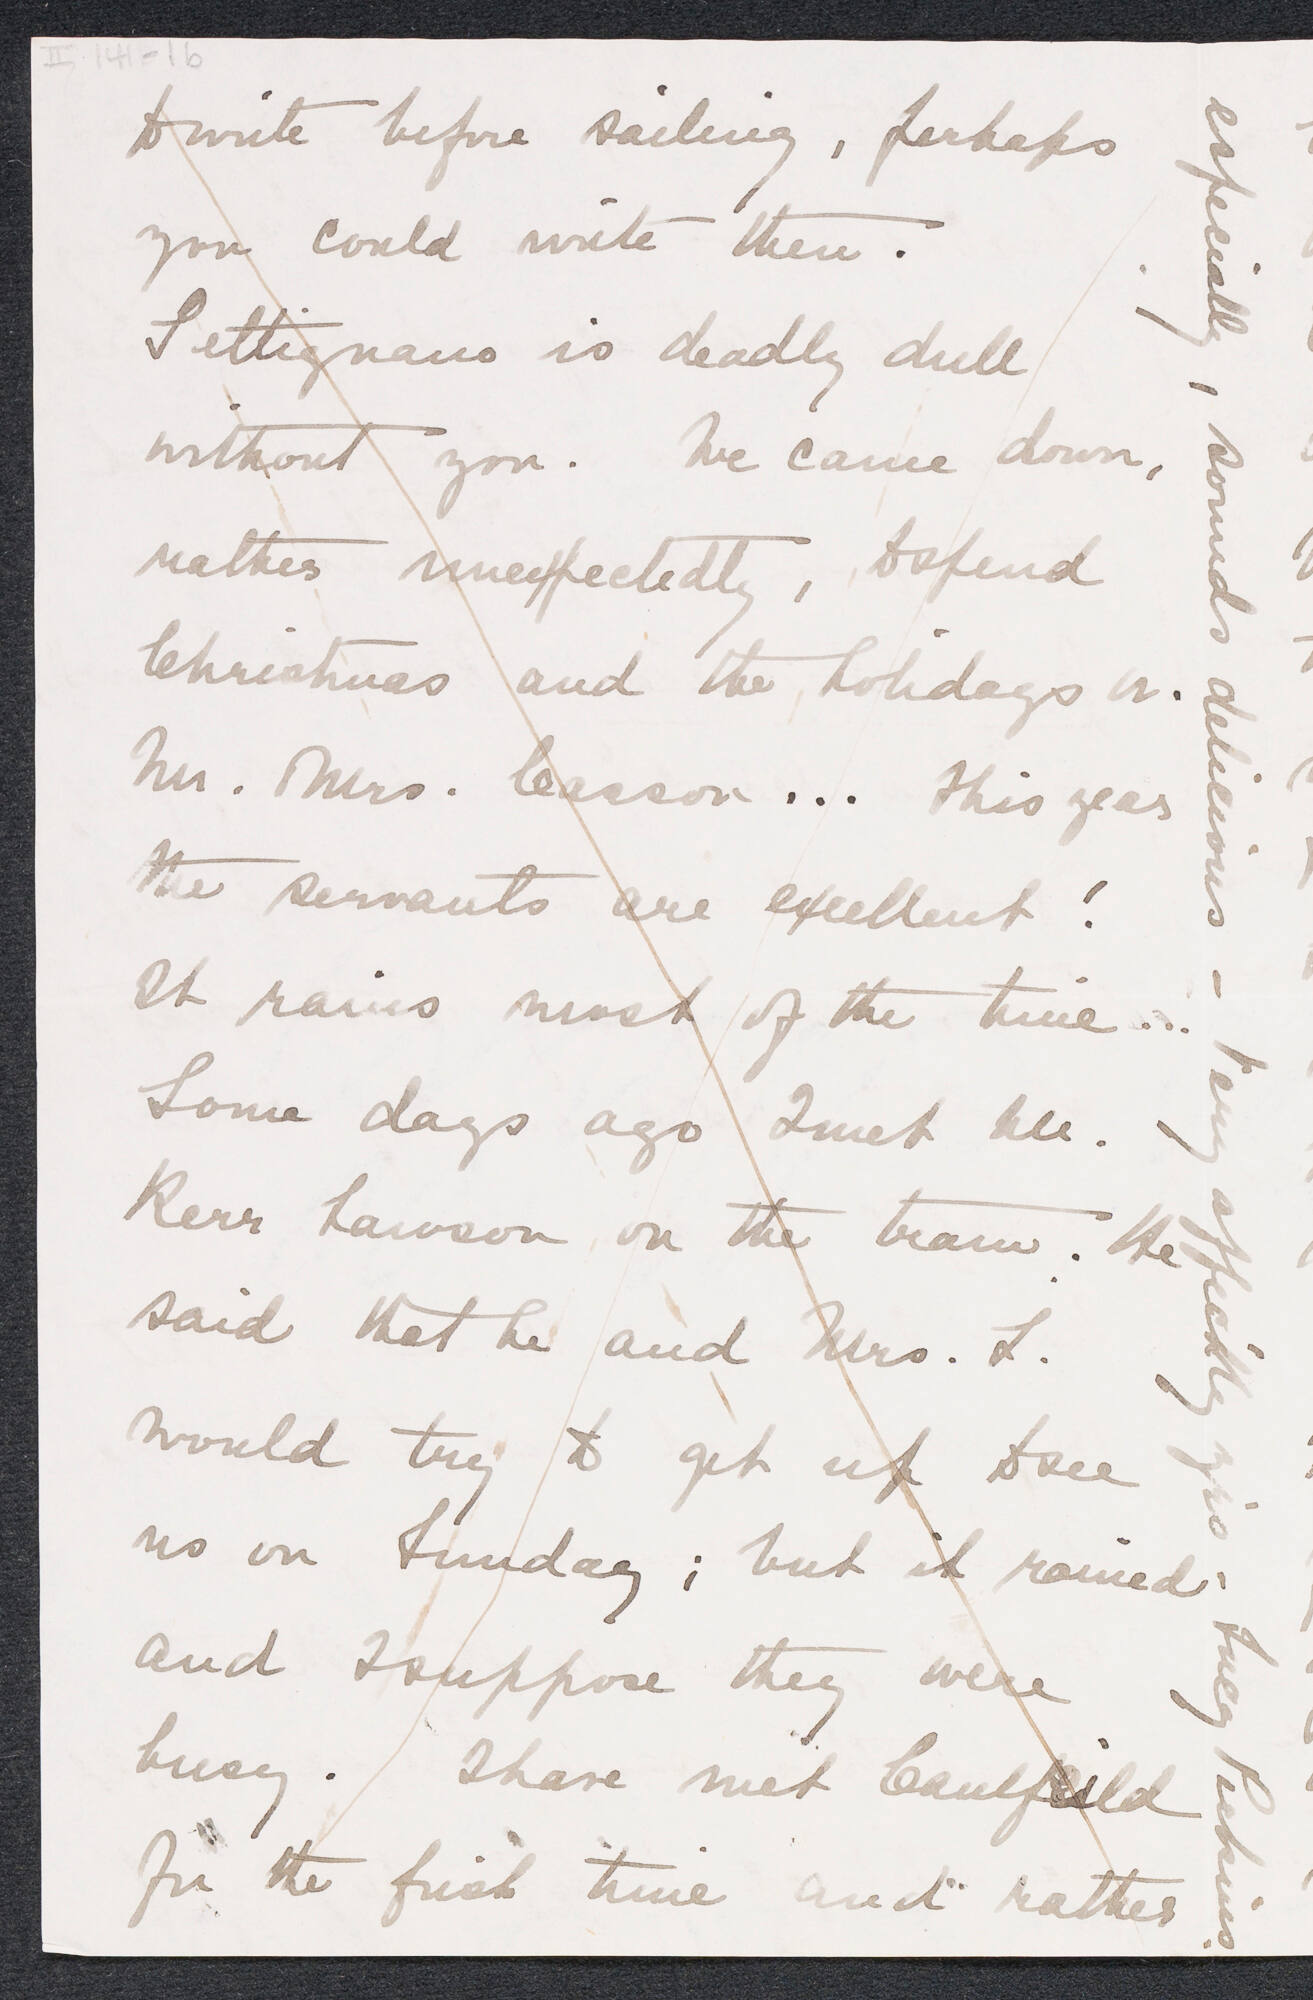 II, 141-16
to write before sailing, perhaps
you could write then.
Settignano is deadly dull
without you. We came down,
rather unexpectedly, to spend
Christmas and the holidays w.
Mr. Mrs. Casson ... This year
the servants are excellent!
It rains most of the time ...
Some days ago I met Mr.
Kerr Lawson on the tram. He
said that he and Mrs. L.
would try to get up to see
us on Sunday; but it rained
and I suppose they were
busy. I have met Caulfeild
for the first time and rather
especially, sounds delicious - very affectly yrs - Lucy Perkins.